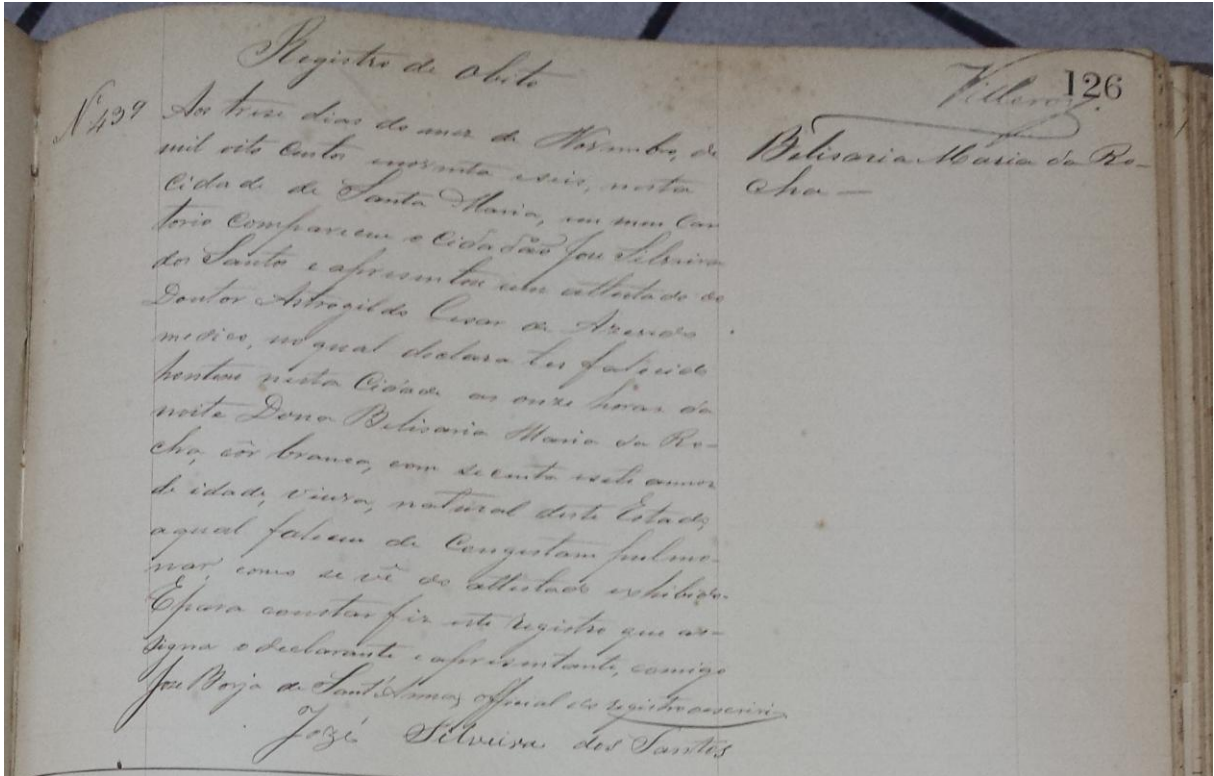 Registro de Obito
Villeroy. 126
Nº 439 Aos trese dias do mez de Novembro, de
mil oito centos enoventa eseis, nesta
Cidade de Santa Maria, em meu Car
torio compareceu o Cidadão José Silveira
dos Santos e apresentou um attestado do
Doutor Astrogildo Cesar de Azevedo
medico, noqual declara ter falecido
hontem nesta Cidade as onze horas da
noite Dona Belisaria Maria da Ro-
cha, côr branca, com secenta esete annos
de idade, viuva, natural deste Estado,
aqual faleceu de Congestam pulmo-
nar, como se vê do attestado exhibido.
Epara constar fiz este registro que as-
signa o declarante e apresentante, comigo
José Borja de Sant'Anna, official do registro oescrivi
José Silveira dos Santos
Belisaria Maria da Ro-
cha —